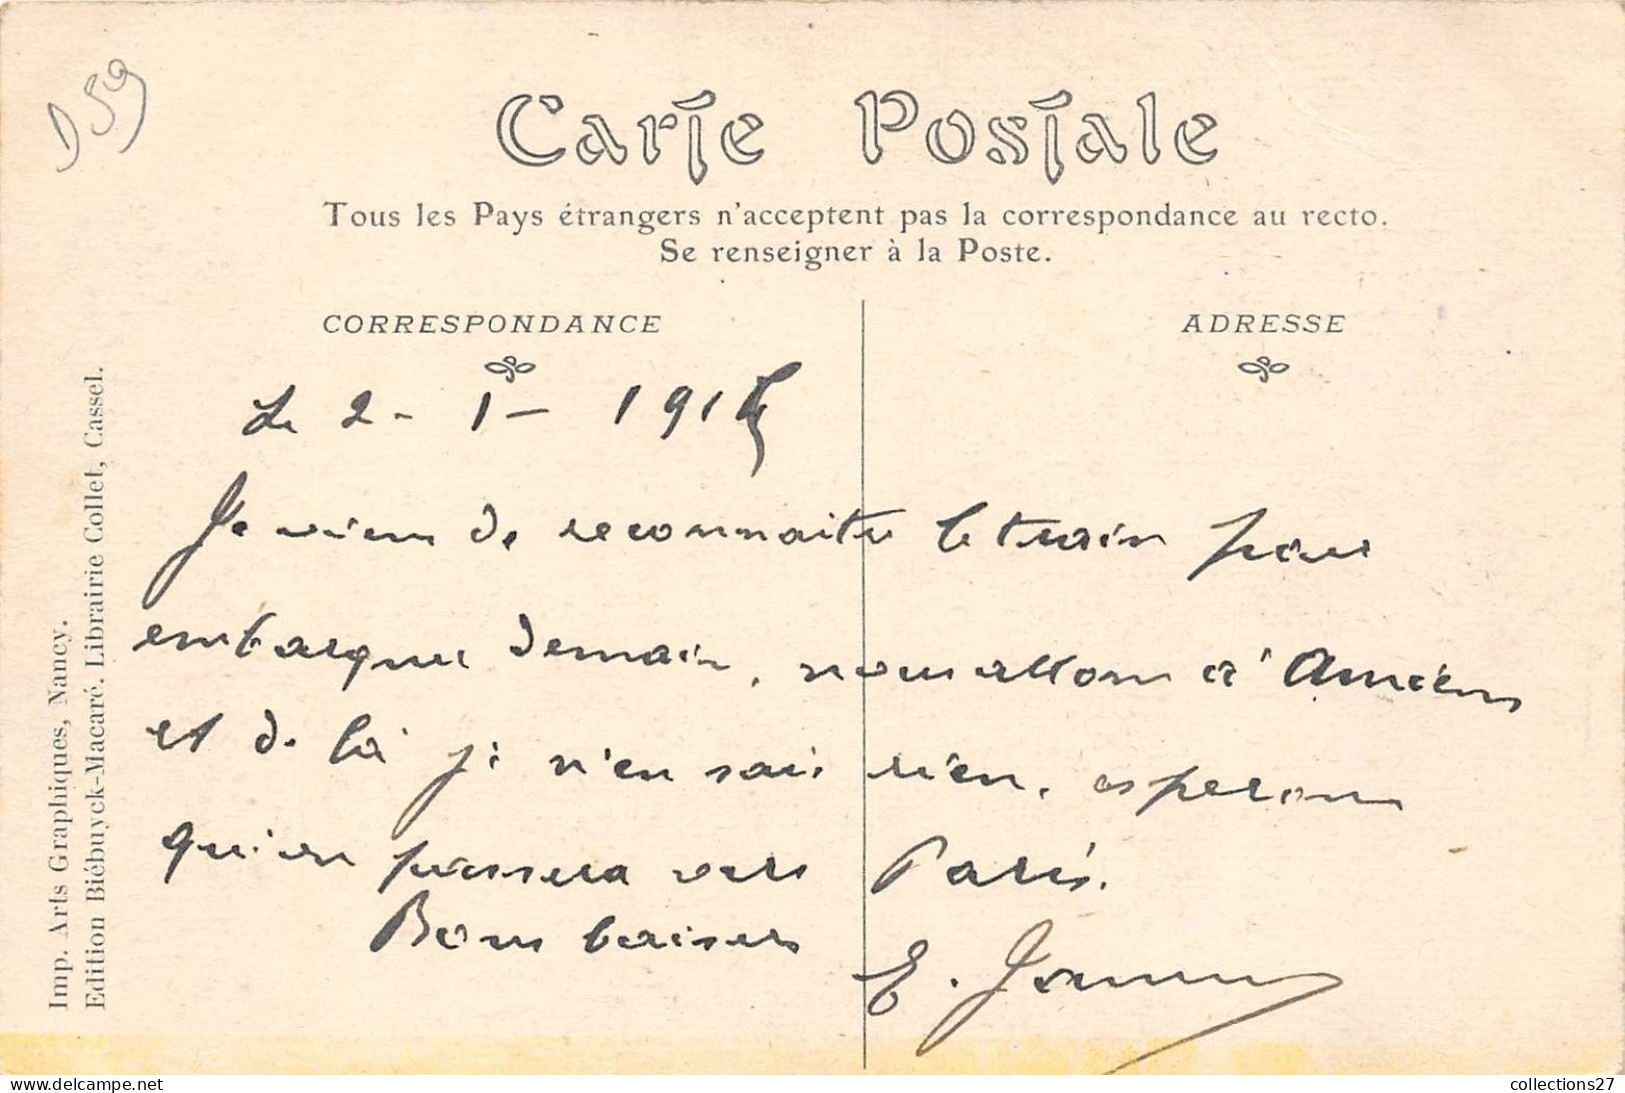 D59
Carte Postale
Tous les Pays étrangers n'acceptent pas la correspondance au recto.
Se renseigner à la Poste.
CORRESPONDANCE
ADRESSE
Le 2 - 1 - 1915
Je viens de reconnaitre le train pour
embarquer demain, nous allons à Amiens
et de là je n'en sais rien, esperons
qu'on passera vers Paris.
Bons baisers
E.
Imp. Arts Graphiques, Nancy.
Edition Biébuyck-Macaré. Librairie Collet, Cassel.
collections27